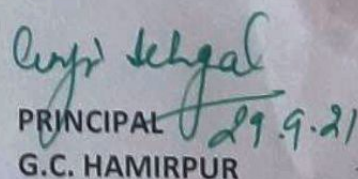 Sehgal
PRINCIPAL 29.9.21
G.C. HAMIRPUR